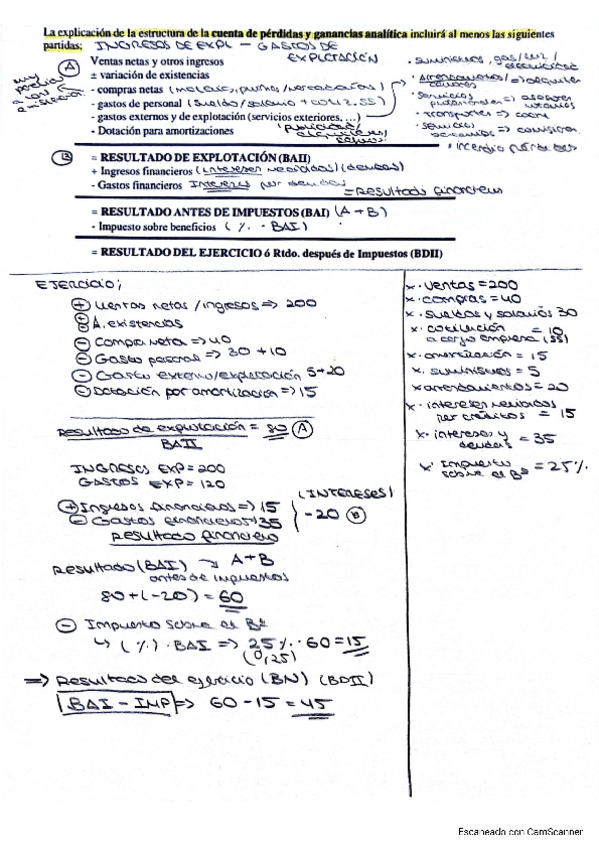 La explicación de la estructura de la cuenta de pérdidas y ganancias analítica incluirá al menos las siguientes
partidas: INGRESOS DE EXPL - GASTOS DE
EXPLOTACIÓN
A
Ventas netas y otros ingresos
± variación de existencias
- compras netas
- gastos de personal (sueldo/salario + cotiz. SS)
- gastos externos y de explotación (servicios exteriores, ...)
- Dotación para amortizaciones
· suministros, gas/luz/
electricidad
· Arrendamientos/
· Servicios
profesionales =>
· transportes =>
· Servicios
bancarios =>
B
= RESULTADO DE EXPLOTACIÓN (BAII)
+ Ingresos financieros (intereses recibidos) (deudas)
- Gastos financieros Intereses por deudas
= Resultado financiero
= RESULTADO ANTES DE IMPUESTOS (BAI) (A+B)
- Impuesto sobre beneficios ( % · BAI )
= RESULTADO DEL EJERCICIO ó Rtdo. después de Impuestos (BDII)
EJERCICIO;
+ Ventas netas / ingresos => 200
A. existencias
- Compra neta => 40
- Gasto personal => 30 + 10
- Gasto externo/explotación 5+20
- Dotación por amortización => 15
Resultado de explotación = 80 A
BAII
INGRESOS EXP = 200
GASTOS EXP = 120
(INTERESES)
+ Ingresos financieros => 15
- Gastos financieros 35
-20 B
Resultado financiero
Resultado (BAI) → A+B
antes de impuestos
80 + (-20) = 60
- Impuesto sobre el Bº
↳ (%) · BAI => 25% · 60 = 15
(0,25)
=> Resultado del ejercicio (BN) (BDII)
BAI - IMP => 60 - 15 = 45
x · Ventas = 200
x · compras = 40
x · sueldos y salarios 30
x · cotización = 10
a cargo empresa (SS)
x · amortización = 15
x · suministros = 5
x arrendamientos = 20
x · intereses recibidos
por créditos = 15
x · intereses y
deudas = 35
x · Impuesto
sobre el Bº = 25%
Escaneado con CamScanner